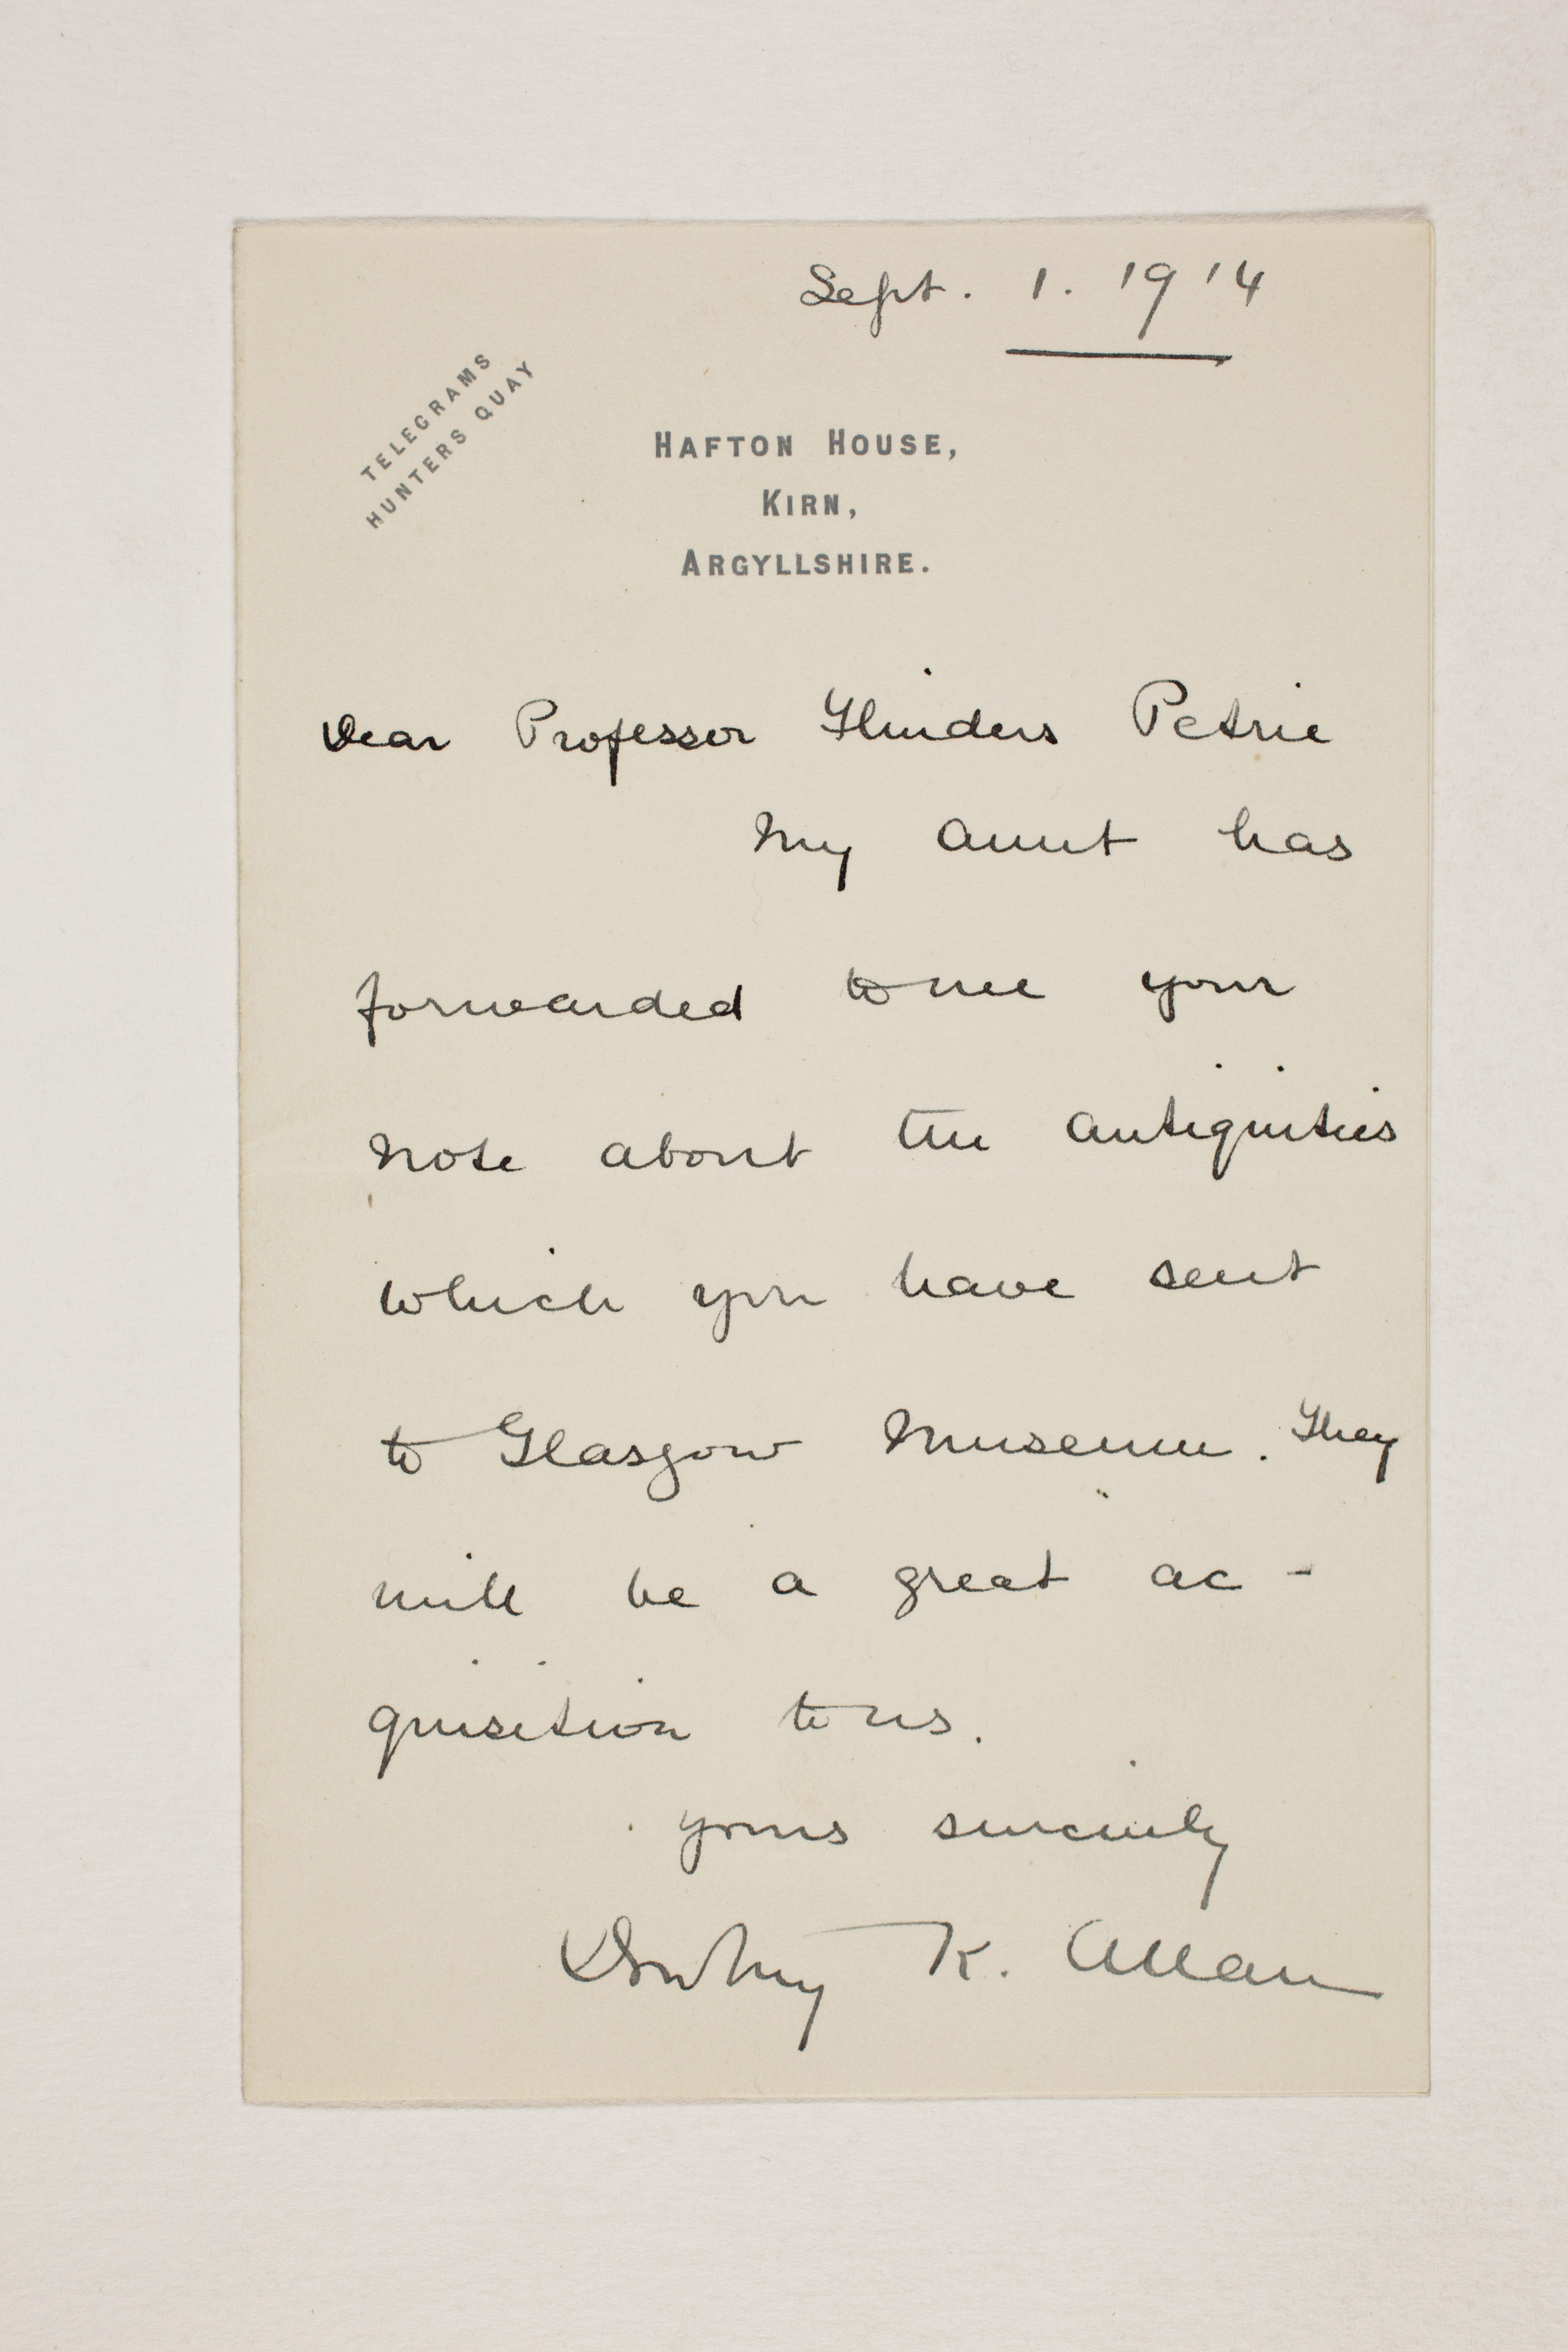 Sept. 1. 1914
TELEGRAMS
HUNTERS QUAY
HAFTON HOUSE,
KIRN,
ARGYLLSHIRE.
Dear Professor Flinders Petrie
My aunt has
forwarded to me your
note about the antiquities
which you have sent
to Glasgow Museum. They
will be a great ac-
quisition to us.
yours sincerely
Dorothy K. Allan